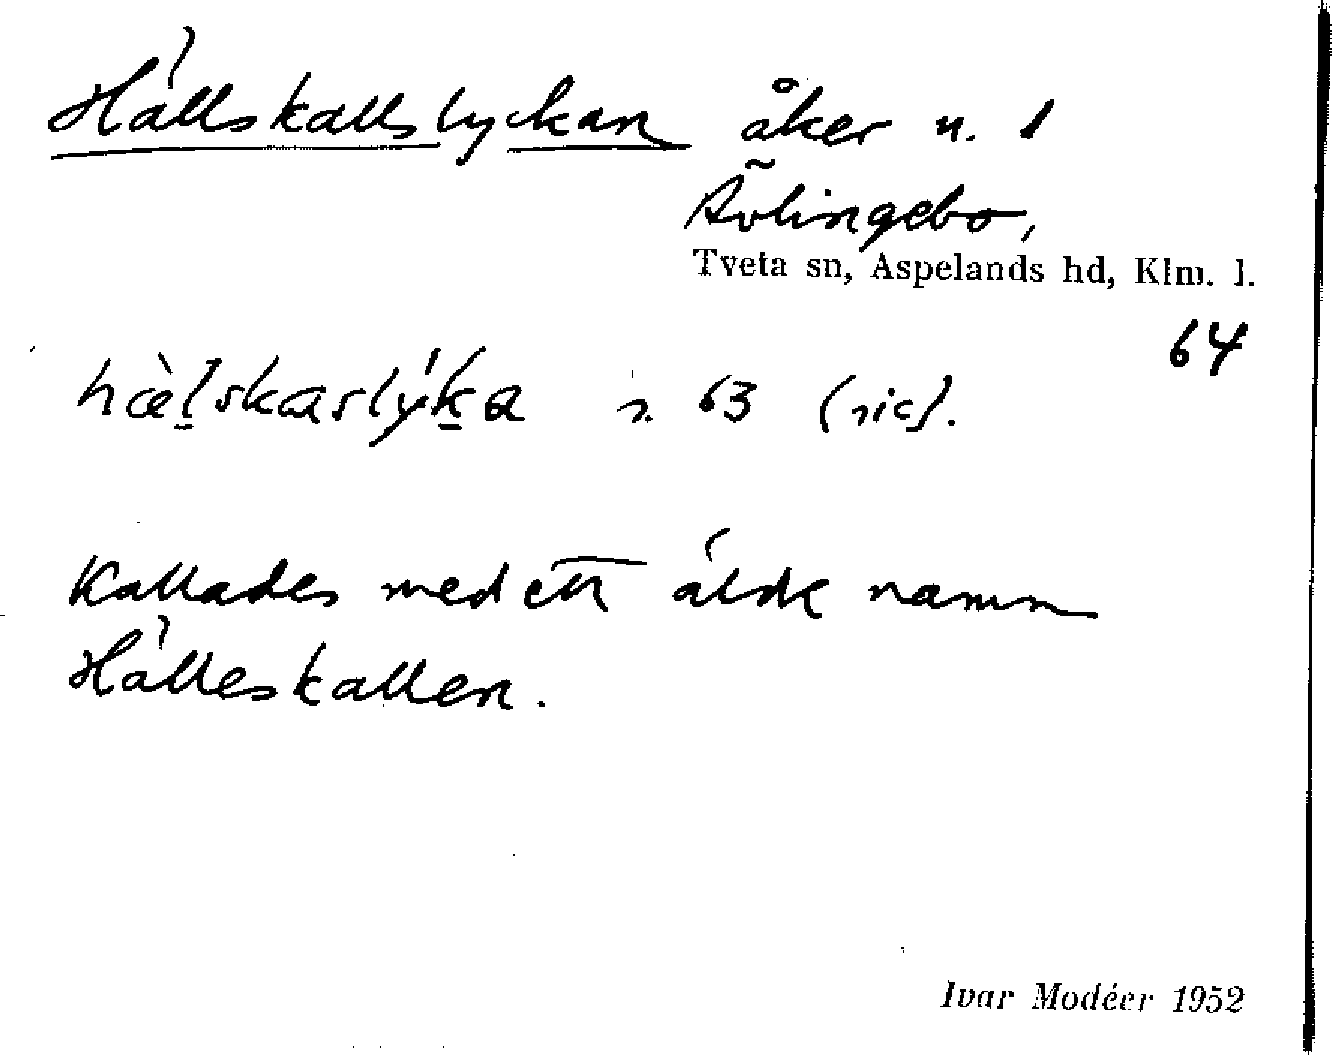 Hällskallslyckan åker n. 1
Ävlingebo,
Tveta sn, Aspelands hd, Klm. l.
64
hæ̀l̠skaslýk̠a s. 63 (sic).
Kallades med ett äldre namn
Hälleskallen.
Ivar Modéer 1952